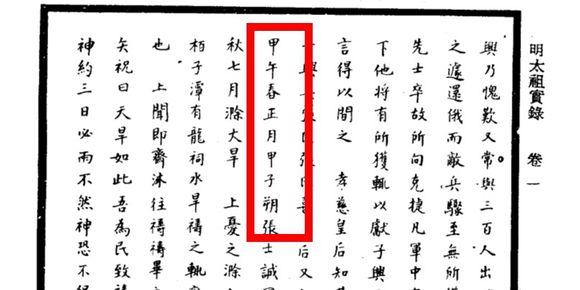 明太祖實錄 卷一
興乃愧歎又常與三百人出
之遽還俄而敵兵驟至無所
先士卒故所向克捷凡軍中
下他將有所獲輒以獻子興
言得以間之 孝慈皇后知
后又
甲午春正月甲子朔張士誠
秋七月滁大旱 上憂之滁
栢子潭有龍祠水旱禱之輒
也 上聞即齋沐往禱禱畢
矢祝曰天旱如此吾為民致禱
神約三日必雨不然神恐不得